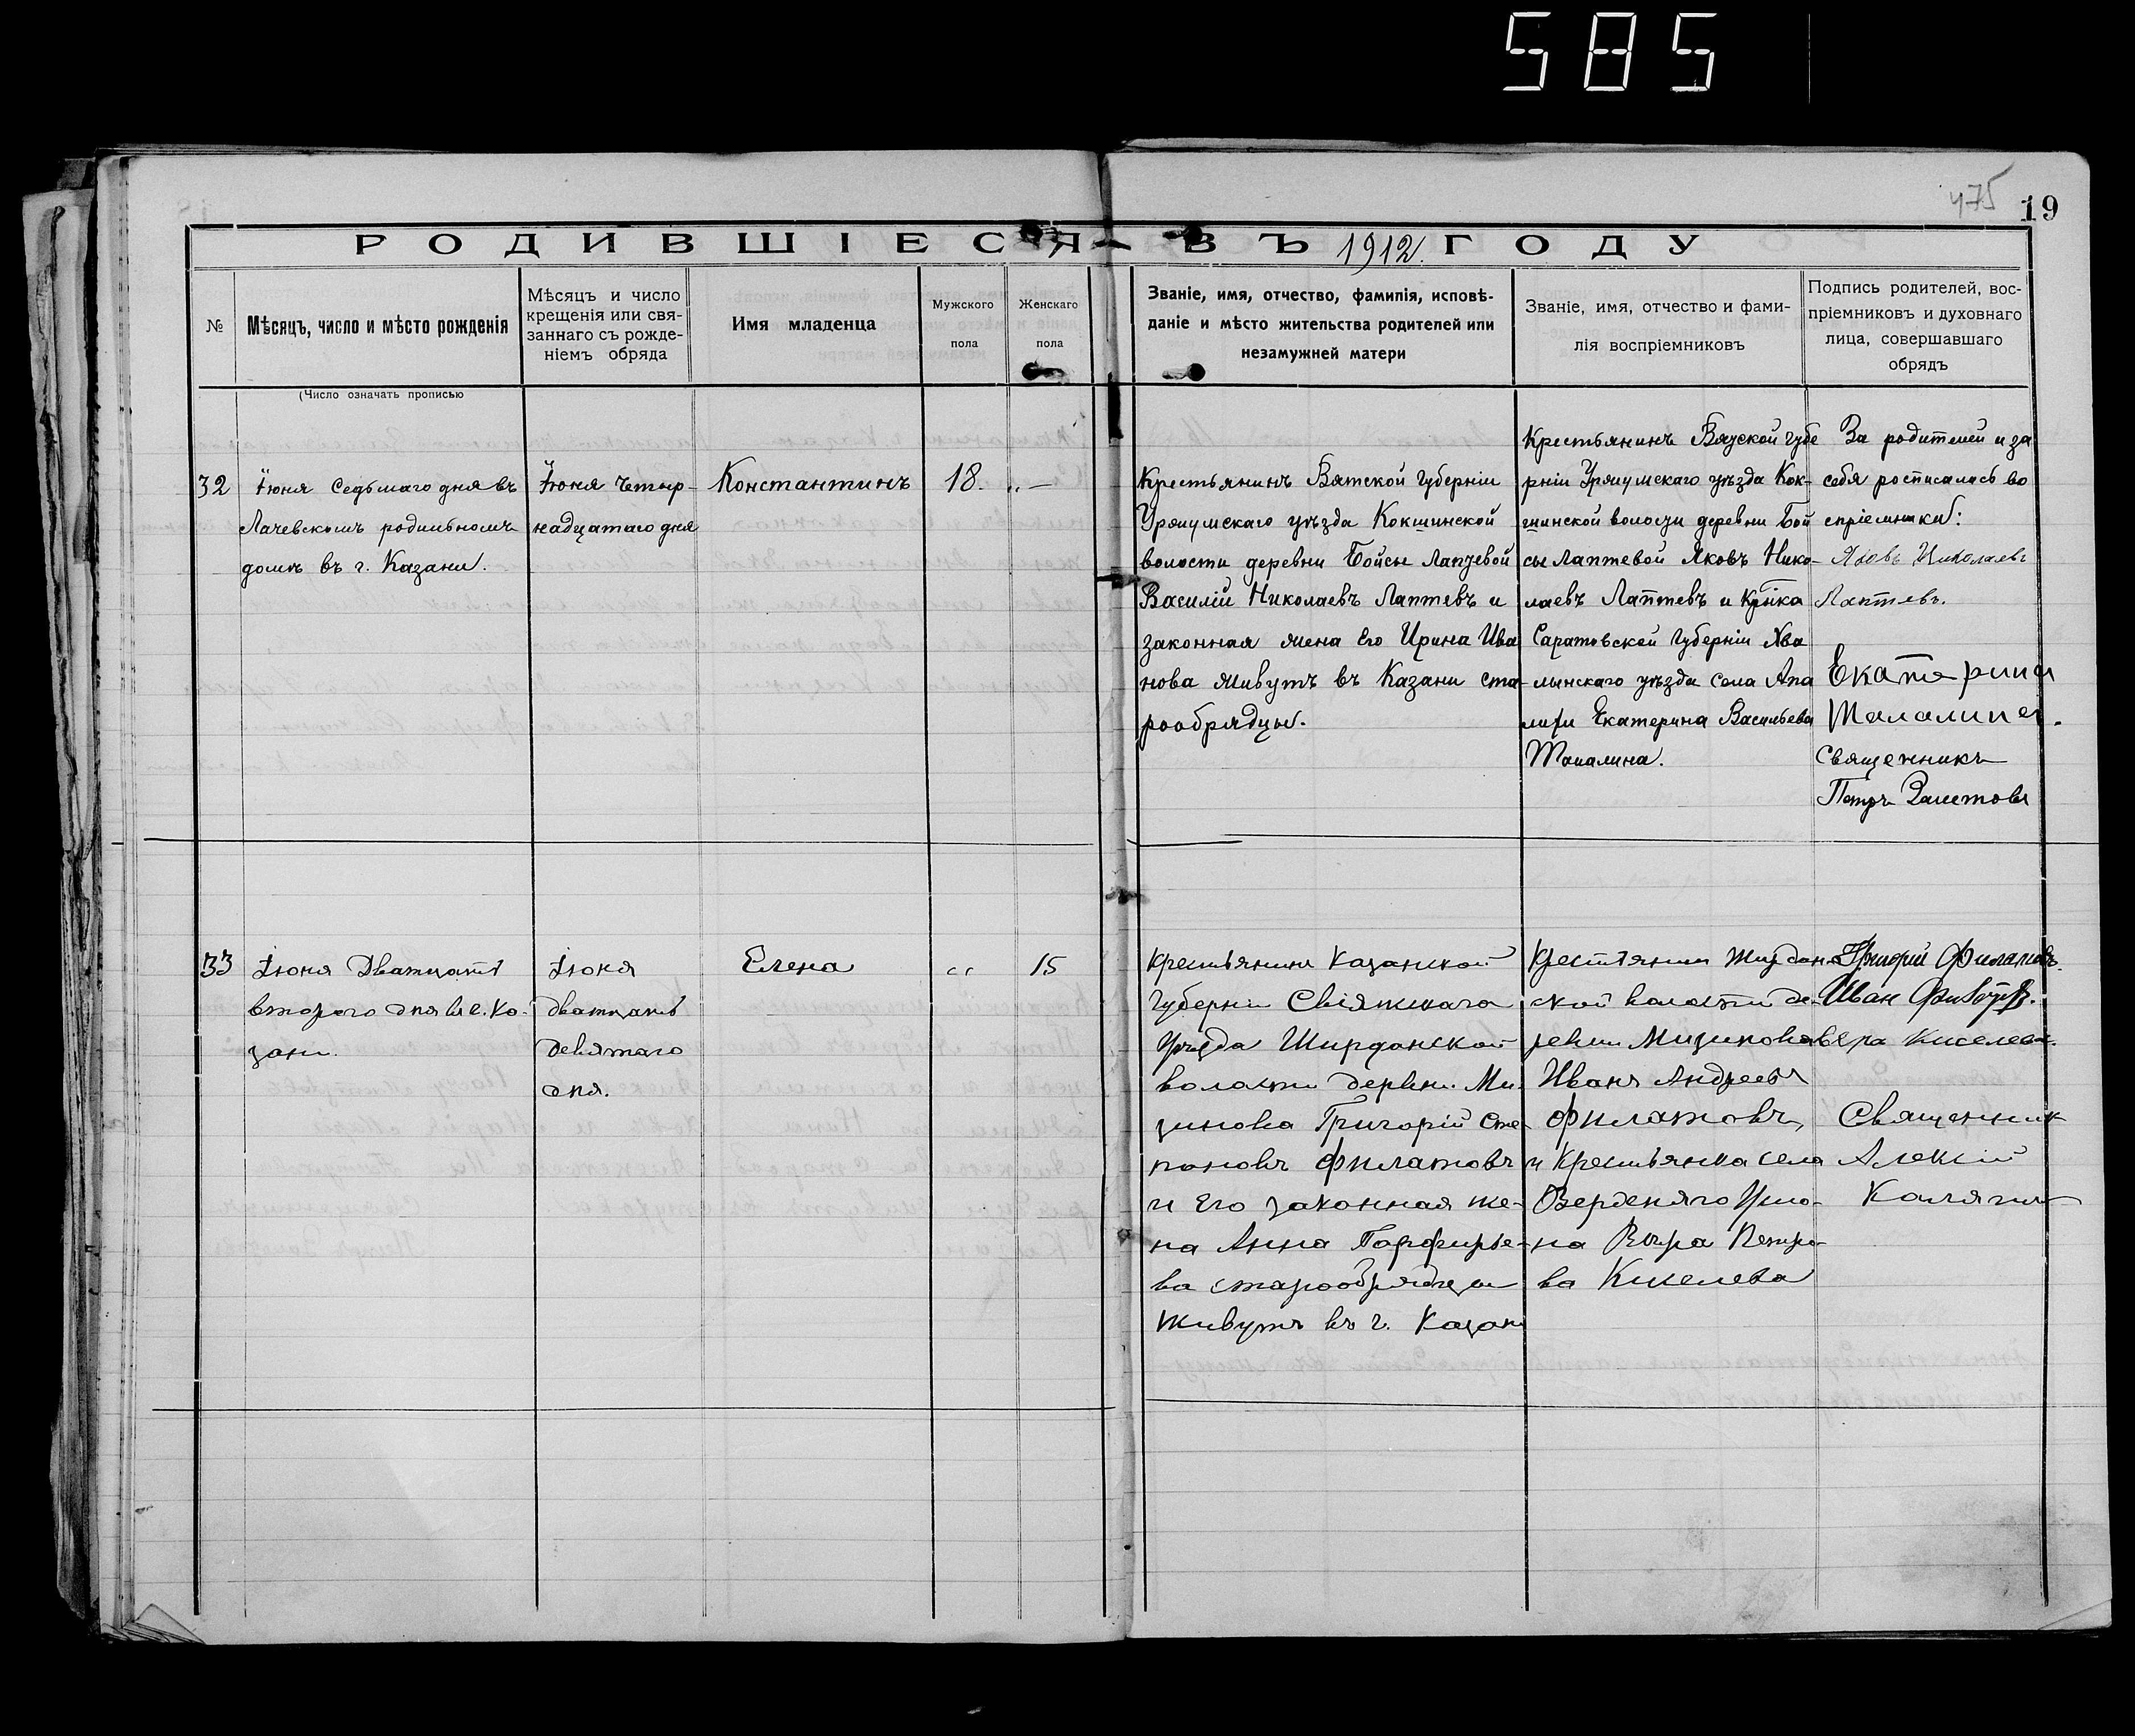 585
475
19
РОДИВШІЕСЯ ВЪ 1912 ГОДУ
№
Мѣсяцъ, число и мѣсто рожденія
Мѣсяцъ и число
крещенія или свя-
заннаго съ рожде-
ніемъ обряда
Имя младенца
Мужского
пола
Женскаго
пола
Званіе, имя, отчество, фамилія, исповѣ-
даніе и мѣсто жительства родителей или
незамужней матери
Званіе, имя, отчество и фами-
лія воспріемниковъ
Подпись родителей, вос-
пріемниковъ и духовнаго
лица, совершавшаго
обрядъ
(Число означать прописью
32
Іюня Седьмаго дня въ
Лачевскомъ родильномъ
домѣ въ г. Казани.
Іюня Четыр-
надцатаго дня
Константинъ
18.
„ —
Крестьянинъ Вятской Губерніи
Уржумскаго уѣзда Кокшинской
волости деревни Бойсы Лаптевой
Василій Николаевъ Лаптевъ и
законная жена Его Ирина Ива
нова живутъ въ Казани ста-
рообрядцы.
Крестьянинъ Вятской губе
рніи Уржумскаго уѣзда Кок-
шинской волости деревни Бой
сы Лаптевой Яковъ Нико-
лаевъ Лаптевъ и
Саратовской Губерніи Хва
лынскаго уѣзда села Апа
лихи Екатерина Васильева
Маналина.
За родителей и за
себя росписались во
спріемники:
Яковъ Николаевъ
Лаптевъ.
Екатерина
Священникъ
Петръ
33
Іюня Дватцать
второго дня в г. Ка-
зани.
Іюня
дватцать
девятаго
дня.
Елена
„
15
Крестьянинъ Казанской
Губерніи Свіяжскаго
Уѣзда Ширданской
волости деревни Ми-
зинова Григорій Сте-
пановъ Филатовъ
и Его законная же-
на Анна Парфирье-
ва старообрядцы
живутъ въ г. Казани
Крестьянин Ширдан-
ской волости де-
ревни Мизинова
Иванъ Андреевъ
Филатовъ,
и Крестьянка села
на Вѣра Петро-
ва Киселева
Григорій Филатовъ.
Иван
вера Киселева.
Священник
Алексій
Калягин